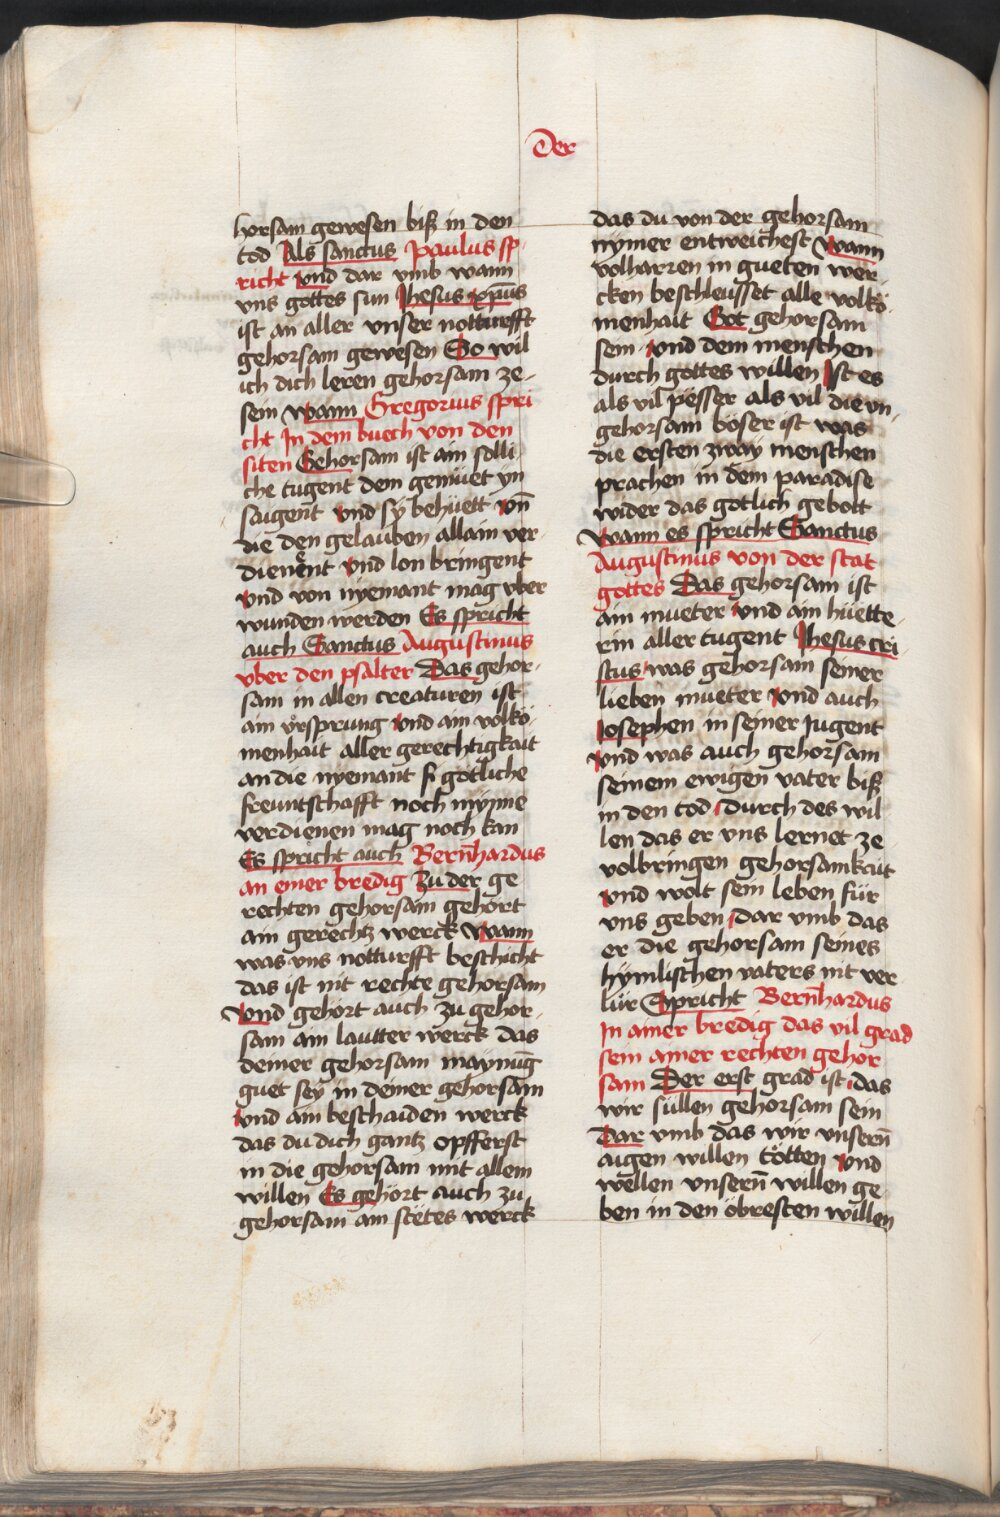 Der
horsam gewesen biß in den
tod Als sanctus Paulus sp
richt Vnd dar vmb wann
vns gottes sun Jhesus xp̄us
ist an aller vnser notturfft
gehorsam gewesen So wil
ich dich leren gehorsam ze
sein wann Gregorius spri
cht In dem buech von den
siten Gehorsam ist ain solli
che tugent dem gemüet yn
saigent vnd sy behüett vn̄
die den gelauben allain ver
dienent vnd lon bringent
vnd von nyemant mag vber
wunden werden Es spricht
auch Sanctus Augustinus
vber den psalter Das gehor
sam in allen creaturen ist
ain vrsprung vnd ain volkō
menhait aller gerechtigkait
an die nyemant si götliche
freuntschafft noch mynne
verdienen mag noch kan
Es spricht auch Bern̄hardus
an einer bredig Zu der ge
rechten gehorsam gehört
ain gerechtz werck Wann
was vns notturfft beschicht
das ist nit rechte gehorsam
Vnd gehört auch zu gehor
sam ain lautter werck das
deiner gehorsam maynūg
guet sey in deiner gehorsam
vnd ain beschaiden werck
das du dich gantz opfferst
in die gehorsam mit allem
willen Es gehört auch zu
gehorsam ain stetes werck
das du von der gehorsam
nymer entweichest Wann
volharren in gueten wer
cken beschleusset alle volkō
menhait Got gehorsam
sein vnd dem menschen
durch gottes willen Ist es
als vil pesser als vil die vn
gehorsam böser ist was
die ersten zway menschen
prachen in dem paradise
wider das götlich gebott
Wann es spricht Sanctus
Augustinus von der stat
gottes Das gehorsam ist
ain mueter vnd ain hüette
rin aller tugent Jhesus cri
stus was gehorsam seiner
lieben mueter vnd auch
Josephen in seiner Jugent
vnd was auch gehorsam
seinem ewigen vater biß
in den tod durch des wil
len das er vns lernet ze
volbringen gehorsamkait
vnd wolt sein leben für
vns geben dar vmb das
er die gehorsam seines
hymlischen vaters nit ver
lür Spricht Bern̄hardus
In ainer bredig das vil grad
sein ainer rechten gehor
sam Der erst grad ist das
wir süllen gehorsam sein
Dar vmb das wir vnsern̄
aigen willen tötten vnd
wellen vnsern̄ willen ge
ben in den öbresten willen